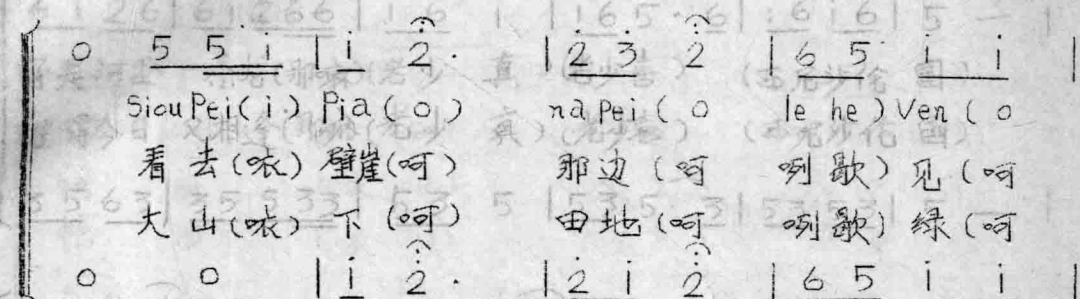 0 5 5 i | i 2 · | 2 3 2 | 6 5 i i |
Siou Pei ( i ) Pia ( o ) na Pei ( o le he ) Ven ( o
看 去 (咴) 壁崖 (呵) 那 边 (呵 咧 歌) 见 (呵
大 山 (咴) 下 (呵) 田 地 (呵 咧 歌) 绿 (呵
0 0 | i 2 · | 2 i 2 | 6 5 i i |